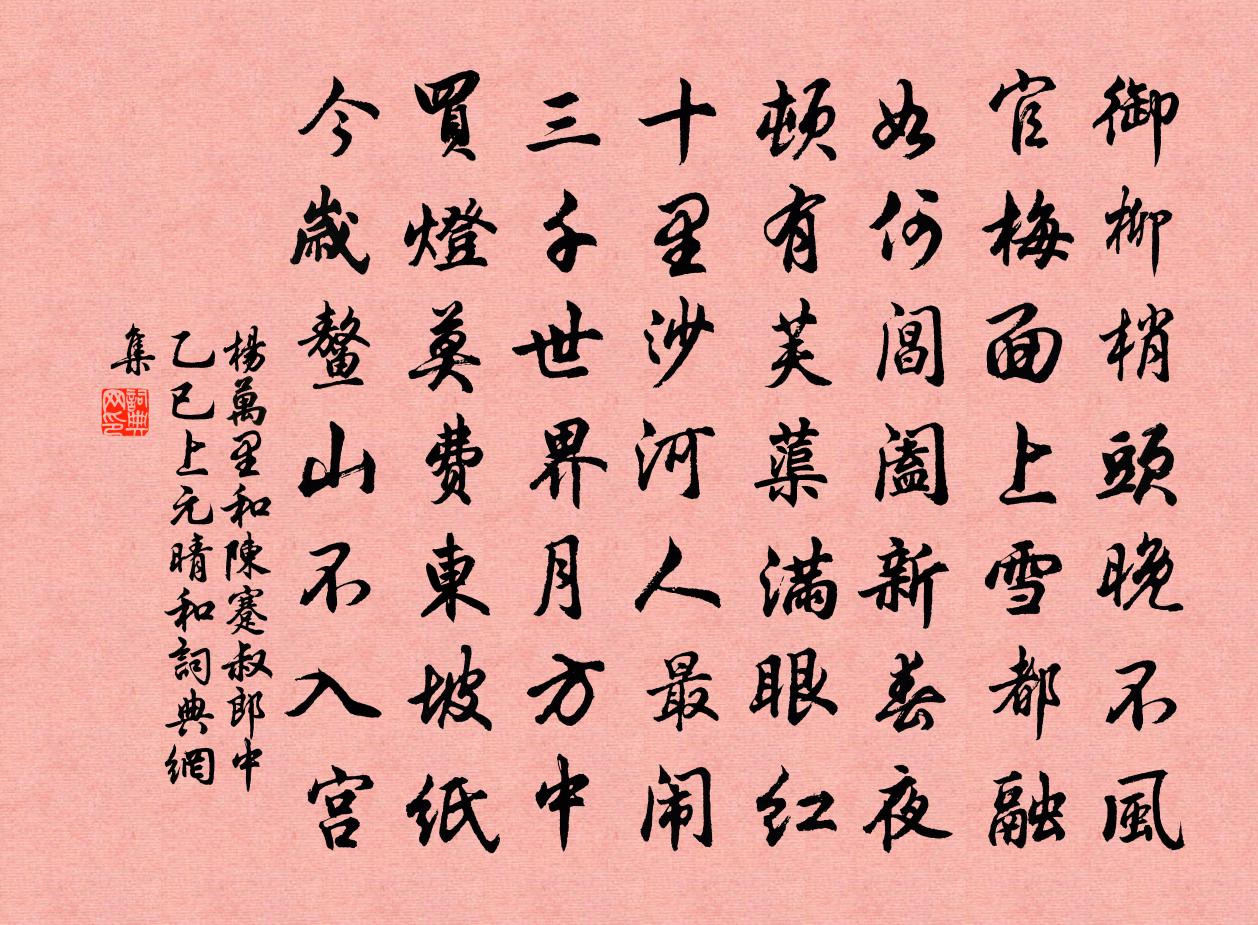 御柳梢頭晚不風
官梅面上雪都融
如何閶闔新春夜
頓有芙蕖滿眼紅
十里沙河人最闹
三千世界月方中
買燈莫費東坡紙
今歲鰲山不入宮
楊萬里和陳蹇叔郎中
乙巳上元晴和詞典網
集
詞典
网印